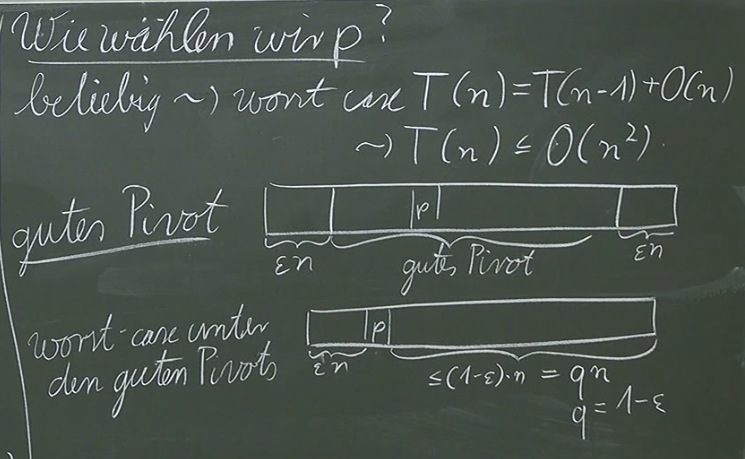 Wie wählen wir p?
beliebig ~) worst case T(n)=T(n-1)+O(n)
~) T(n) ≤ O(n²).
gutes Pivot
p
εn gutes Pivot εn
worst-case unter
den guten Pivots
p
εn ≤(1-ε)·n = qn
q = 1-ε